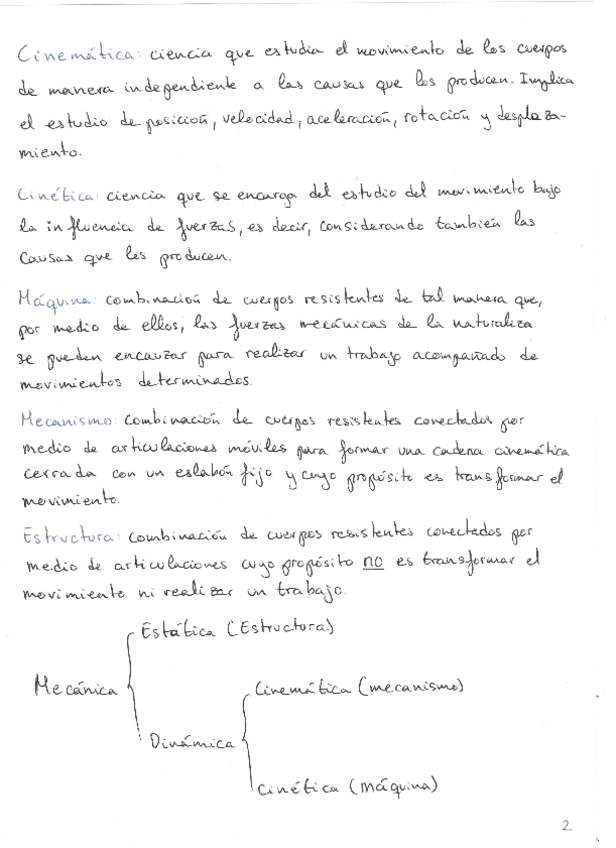 Cinemática: ciencia que estudia el movimiento de los cuerpos
de manera independiente a las causas que los producen. Implica
el estudio de posición, velocidad, aceleración, rotación y desplaza-
miento.
Cinética: ciencia que se encarga del estudio del movimiento bajo
la influencia de fuerzas, es decir, considerando también las
causas que los producen.
Máquina: combinación de cuerpos resistentes de tal manera que,
por medio de ellos, las fuerzas mecánicas de la naturaleza
se pueden encauzar para realizar un trabajo acompañado de
movimientos determinados.
Mecanismo: combinación de cuerpos resistentes conectados por
medio de articulaciones móviles para formar una cadena cinemática
cerrada con un eslabón fijo y cuyo propósito es transformar el
movimiento.
Estructura: combinación de cuerpos resistentes conectados por
medio de articulaciones cuyo propósito no es transformar el
movimiento ni realizar un trabajo.
Estática (Estructura)
Mecánica
Cinemática (mecanismo)
Dinámica
Cinética (máquina)
2